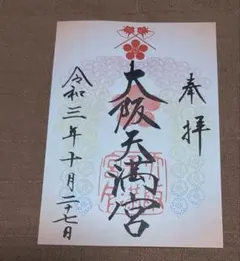 奉拝
大阪天満宮
令和三年十月二十七日